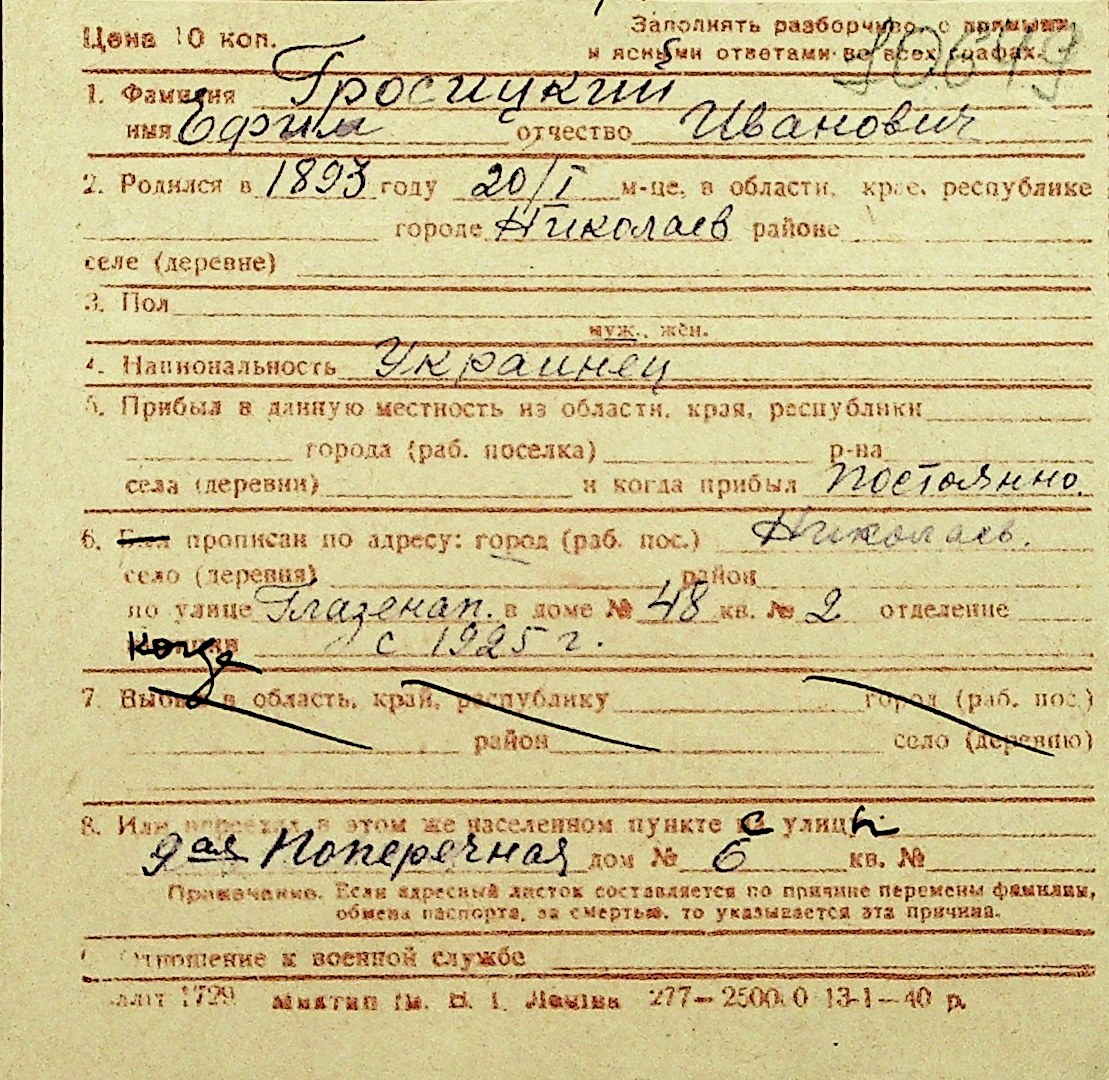 Цена 10 коп.
Заполнять разборчиво, с прямыми
и ясными ответами во всех графах.
1. Фамилия Гросицкий
имя Ефим отчество Иванович
2. Родился в 1893 году 20/I м-це, в области, крае, республике
городе Николаев районе
селе (деревне)
3. Пол
муж., жен.
4. Национальность Украинец
5. Прибыл в данную местность из области, края, республики
города (раб. поселка) р-на
села (деревни) и когда прибыл постоянно.
6. Был прописан по адресу: город (раб. пос.) Николаев.
село (деревня) район
по улице Глазенап. в доме № 48 кв. № 2 отделение
когда с 1925 г.
7. Выбыл в область, край, республику город (раб. пос.)
район село (деревню)
8. Или переехал в этом же населенном пункте с улицы
9ая Поперечная дом № 6 кв. №
Примечание. Если адресный листок составляется по причине перемены фамилии,
обмена паспорта, за смертью, то указывается эта причина.
Отношение к военной службе
1729 ім. В. І. Леніна 277—2500.0 13-1—40 р.